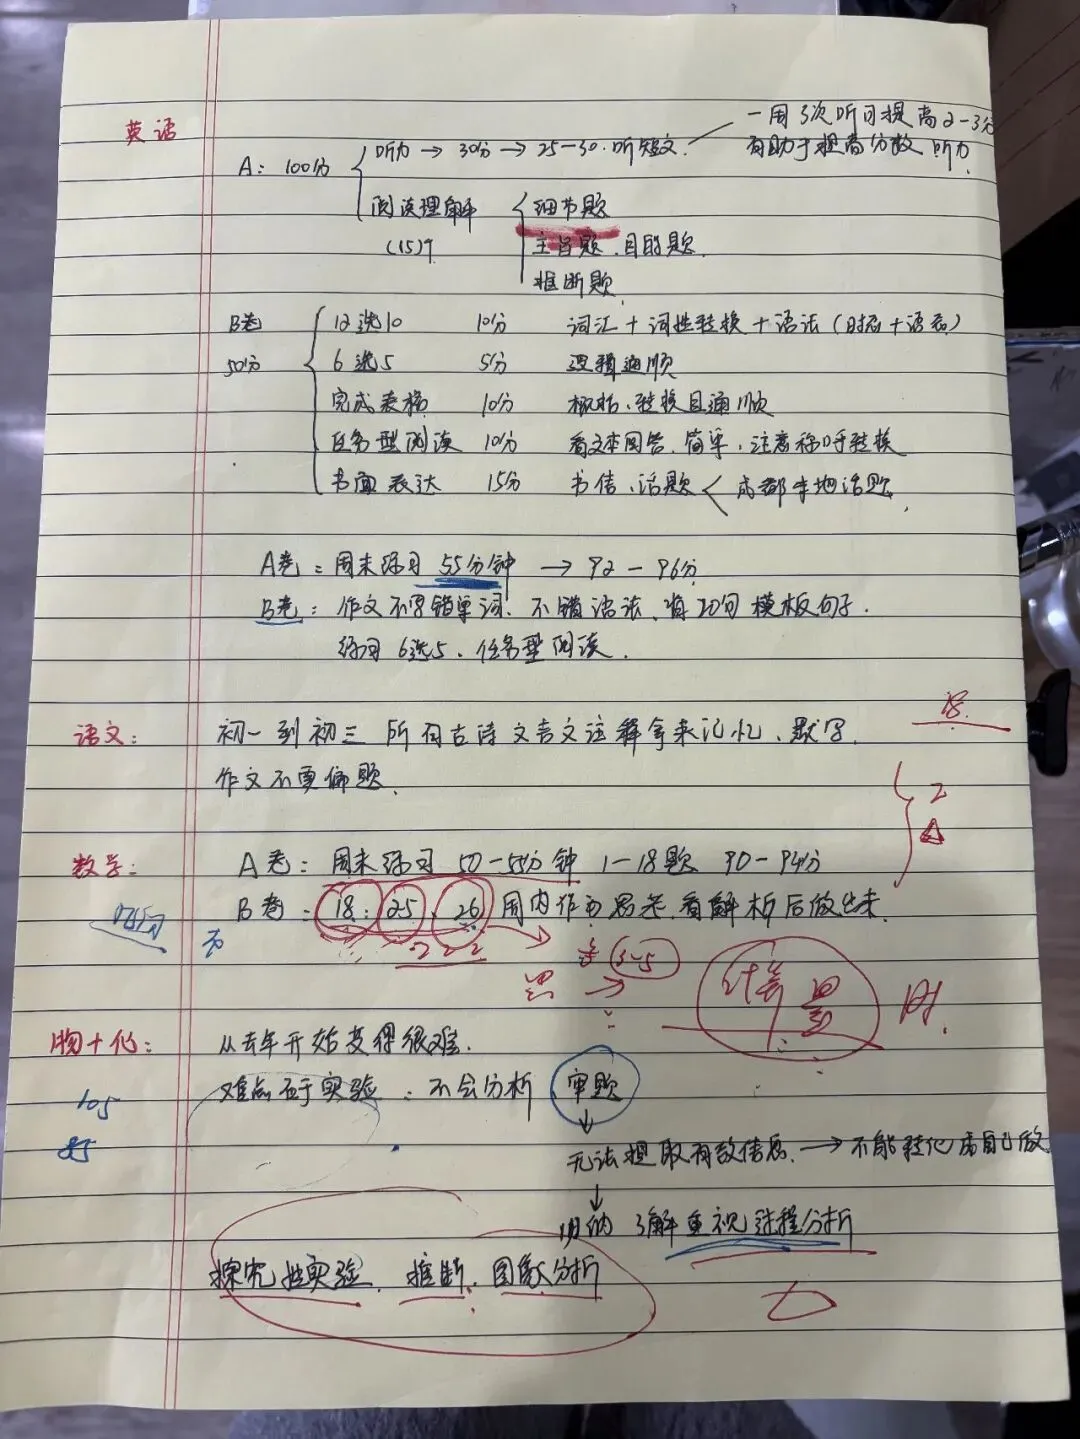 英语
一周3次听可提高2-3分
A: 100分 听力 → 30分 → 25-30.听短文. 有助于提高分数 听力.
阅读理解 细节题
(15)个 主旨题.目的题.
推断题.
B卷 12选10 10分 词汇+词性转换+语法(时态+语态)
50分 6选5 5分 逻辑通顺
完成表格 10分 概括、转换且通顺
任务型阅读 10分 看文本回答.简单,注意称呼转换
书面表达 15分 书信、话题 < 成都本地话题.
A卷: 周末练习 55分钟 → 92-96分
B卷: 作文不写错单词、不错语法、背20句模板句子.
练习6选5、任务型阅读.
18.
语文: 初一到初三所有古诗文言文注释拿来记忆、默写.
作文不要偏题.
2
数学: A卷: 周末练习 50-55分钟 1-18题 90-94分
B卷: 18. 25、26 周内作为思考,看解析后做出来.
2 2 2
3~5
思 → 计算量 时.
物+化: 从去年开始变得很难.
105 难点在于实验: 不会分析 审题
85
无法提取有效信息. → 不能转化为自己做
归纳 了解重视过程分析
探究性实验、推断、图像分析